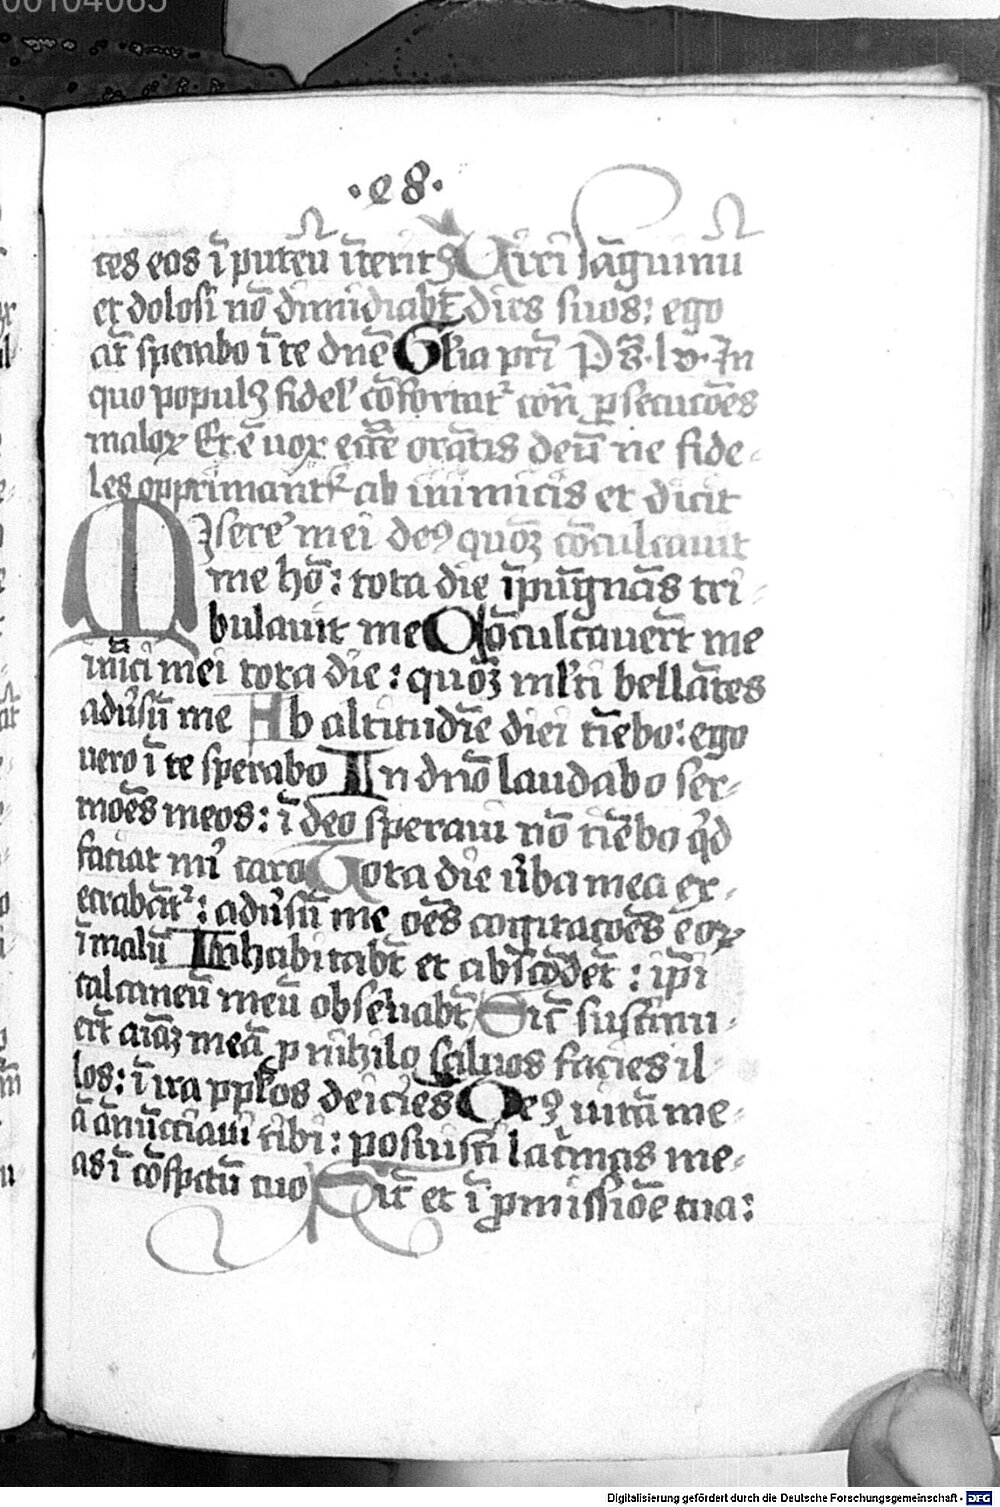 00104065
·e8·
tes eos ī putēū īterit9 Uiri sāguinū
et dolosi nō dimidiabt̄ dies suos: ego
aūt sperabo ī te dnē Gl'ia pr̄i Ps̄·lv· In
quo popul9 fidel' cōfortat᷑ cōn̄ psecucōes
maloꝝ Et ē vox ecc̄e orātis deū ne fide-
les opprimant᷑ ab inimicis et dicit
Misere' mei de9 qm̄ cōculcauit
me hō: tota die īpūgnās tri-
bulauit me Cōculcauert̄ me
inīci mei tota die: qm̄ ml'ti bellātes
adu'sū me Ab altitudīe diei tīebo: ego
uero ī te sperabo In dnō laudabo ser-
mōes meos: ī deo speraui nō tīebo qd̄
faciat mi' caro Tota die ūba mea ex-
ecrabāt᷑: adu'sū me oēs cogitacōes eoꝝ
ī malū Inhabitabt̄ et abscōdēt: ipī
calcaneū meū obseruabt̄ Sic̄ sustinu-
ert̄ aīaꝫ meā p nihilo saluos facies il-
los: ī ira ppl'os deicies De9 uitā me-
ā ānūctiaui tibi: posuisti lac'mas me-
as ī cōspctū tuo Sic̄ et ī pmissiōe tua:
Digitalisierung gefördert durch die Deutsche Forschungsgemeinschaft - DFG